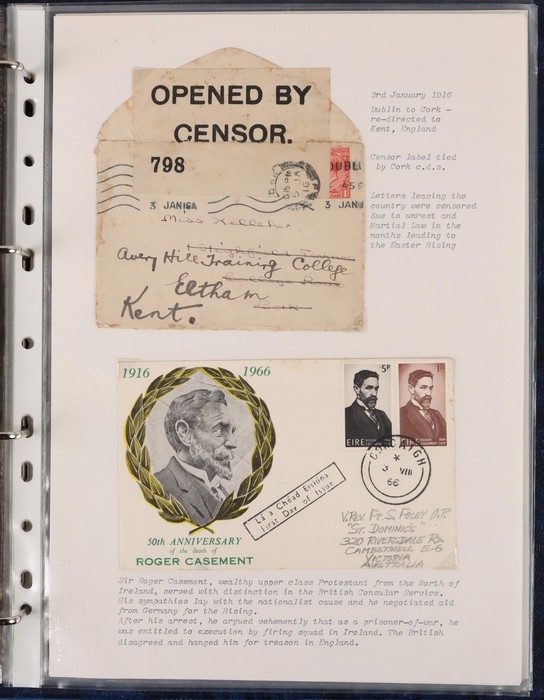 OPENED BY
CENSOR.
798
3 JAN 16
3 JAN
Miss Kelleher
Avery Hill Training College
Eltham
Kent.
3rd January 1916
Dublin to Cork -
re-directed to
Kent, England
Censor label tied
by Cork c.d.s.
Letters leaving the
country were censored
due to unrest and
Martial Law in the
months leading to
the Easter Rising
1916 1966
50th ANNIVERSARY
of the death of
ROGER CASEMENT
Lá a Chéad Eisiúna
First Day of Issue
5P
1/-
EIRE ROGER CASEMENT
EIRE ROGER CASEMENT
3 VIII
66
V. Rev. Fr. S. Foley O.P.
"St. Dominic's"
320 Riversdale Rd
Camberwell E.6
Victoria
Australia
Sir Roger Casement, wealthy upper class Protestant from the North of
Ireland, served with distinction in the British Consular Service.
His sympathies lay with the nationalist cause and he negotiated aid
from Germany for the Rising.
After his arrest, he argued vehemently that as a prisoner-of-war, he
was entitled to execution by firing squad in Ireland. The British
disagreed and hanged him for treason in England.